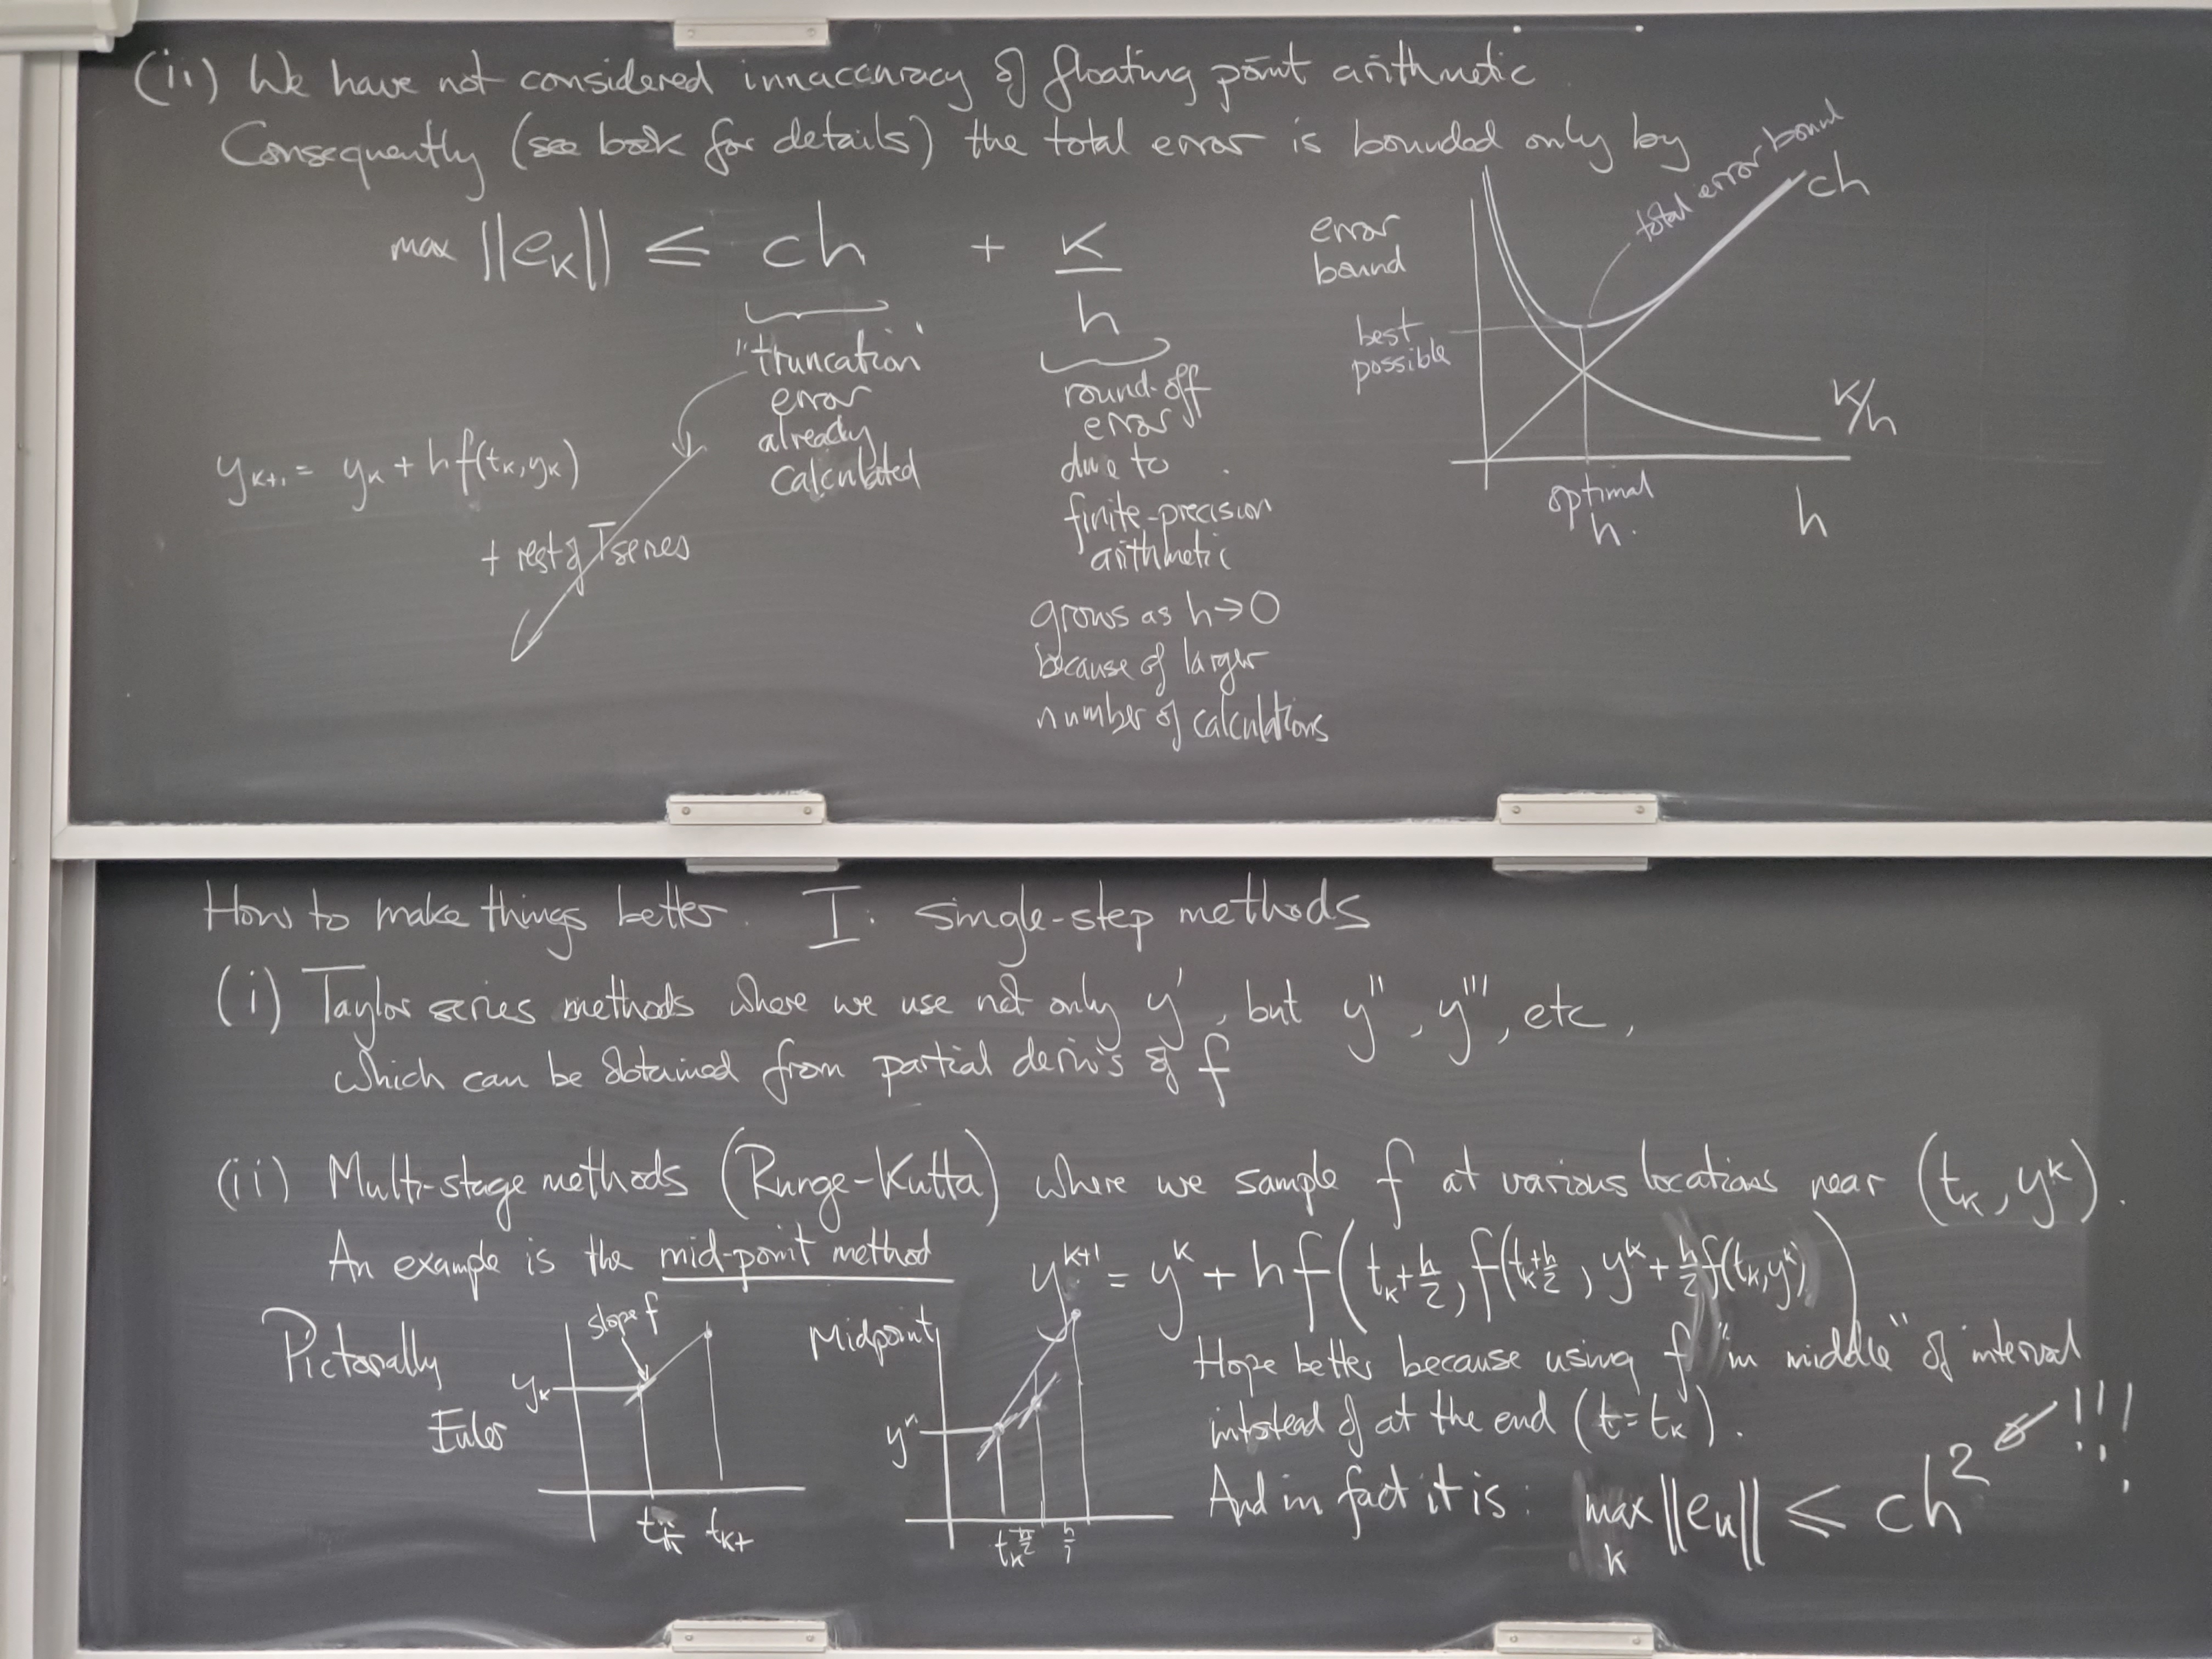 (ii) We have not considered innaccuracy of floating point arithmetic
Consequently (see book for details) the total error is bounded only by
max ||e_K|| ≤ ch + K/h
"truncation"
error
already
calculated
round-off
error
due to
finite-precision
arithmetic
grows as h→0
because of larger
number of calculations
y_{k+1} = y_k + hf(t_k, y_k)
+ rest of T series
error
bound
total error bound
ch
best
possible
K/h
optimal
h.
h
How to make things better. I. Single-step methods
(i) Taylor series methods where we use not only y', but y'', y''', etc,
which can be obtained from partial deriv's of f
(ii) Multi-stage methods (Runge-Kutta) where we sample f at various locations near (t_k, y^k).
An example is the mid-point method y^{k+1} = y^k + hf(t_k+h/2, f(t_k+h/2, y^k+h/2 f(t_k, y^k))
Pictorially
Euler
slope f
y_k
t_k t_{k+
Midpoint
y^k
t_k
Hope better because using f "in middle" of interval
intstead of at the end (t=t_k).
And in fact it is: max_k ||e_k|| ≤ ch^2 !!!